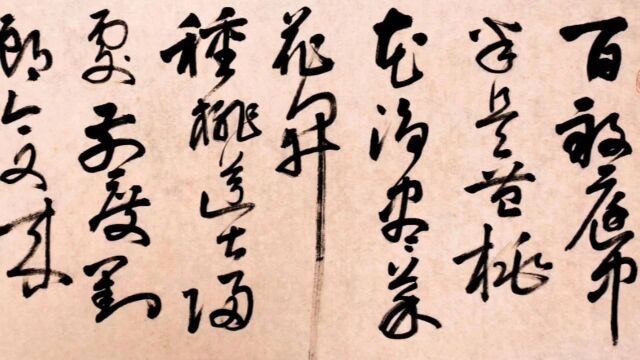 百畝庭中
半是苔桃
花淨盡菜
花開
種桃道士歸
處前度劉
郎今又來